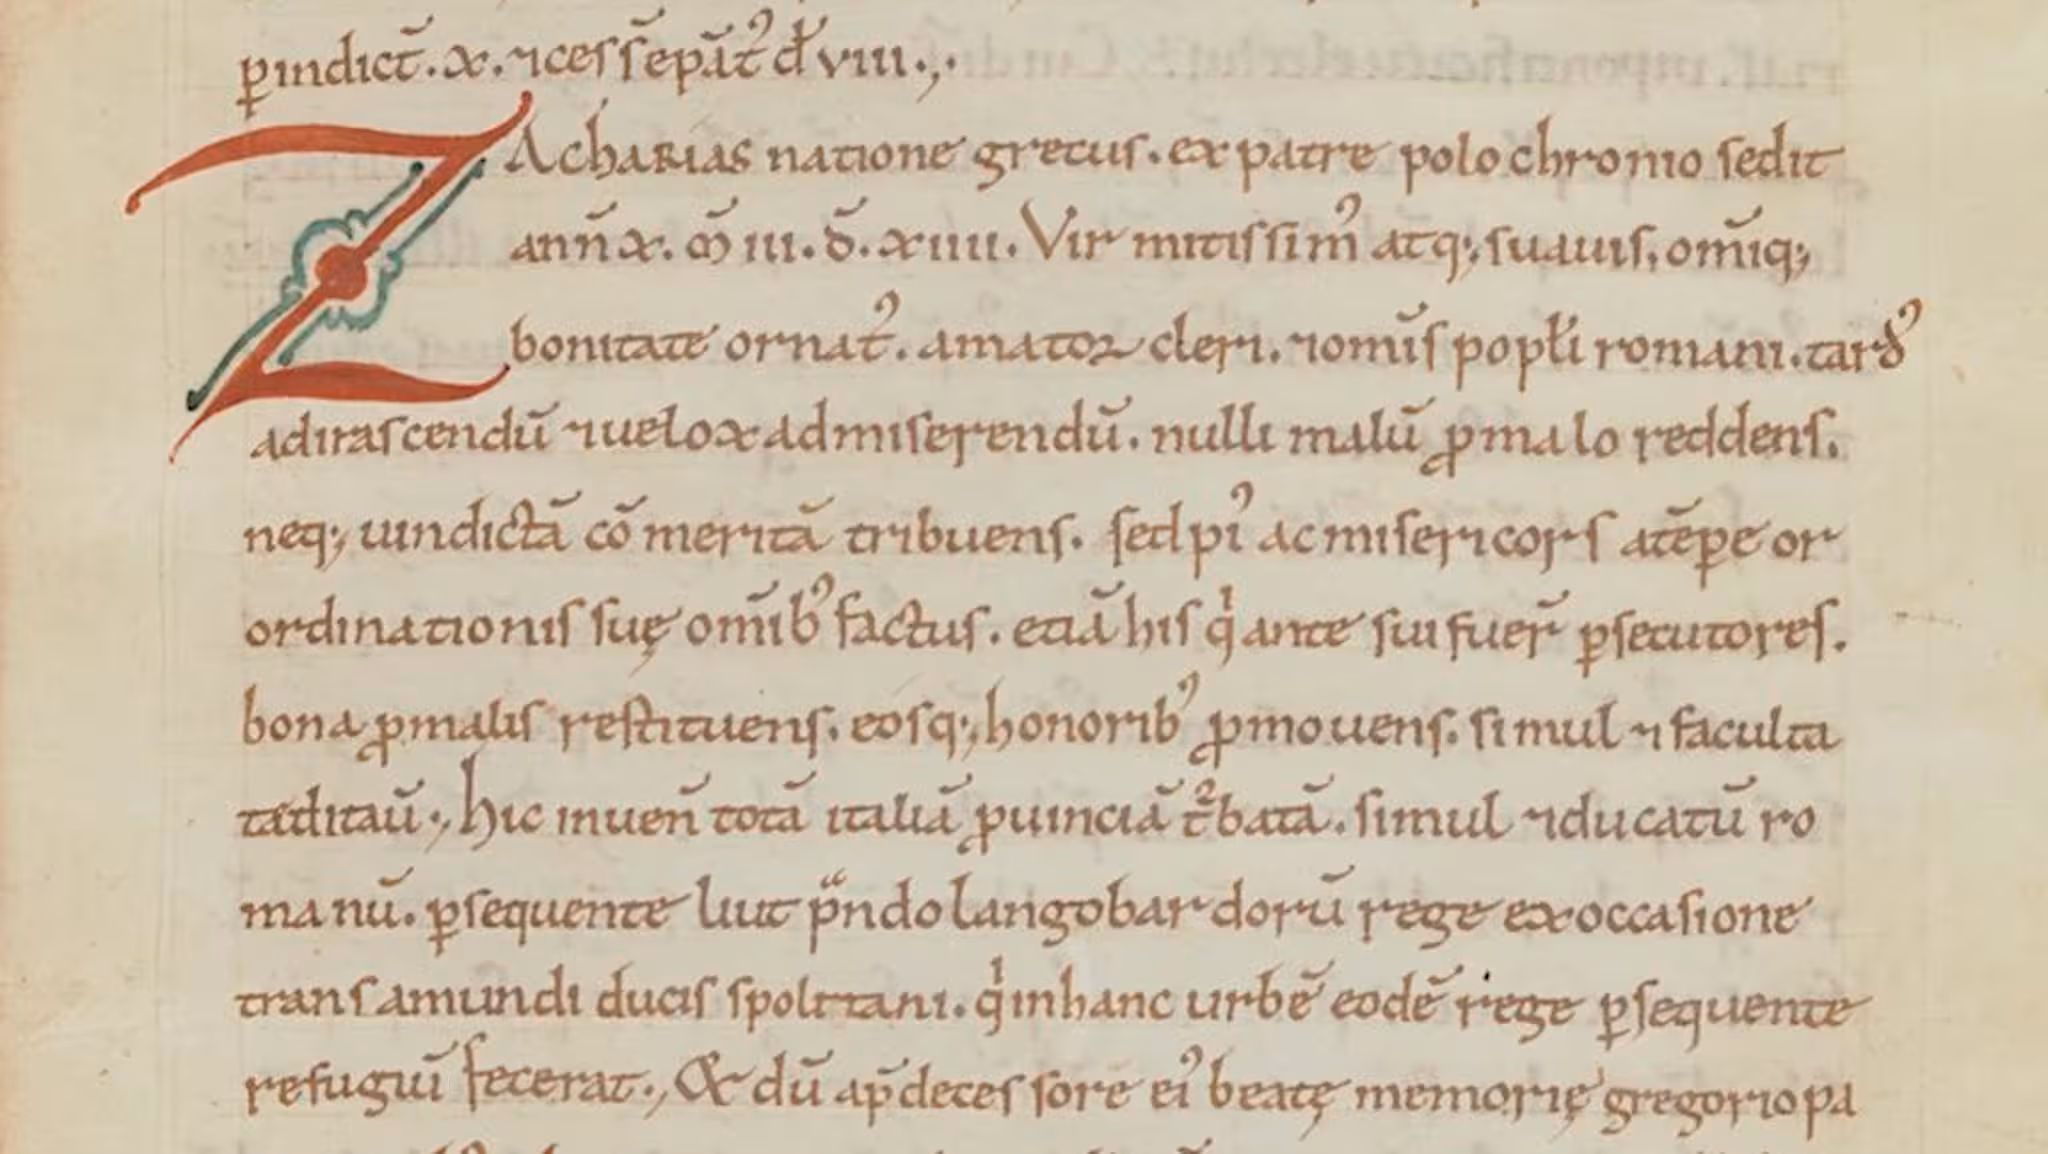 ꝑindict̄. x. ⁊cesſ ſepāt᾽ đ viii.,.
ZAchaRias natione grecus. ex patre polochronio sedit
ann̄ x. m̄ iii. d̄. xiiii. Vir mitiſſim᾽ atq; suauiſ, om̄iq;
bonitate ornat᾽. amator cleri. ⁊om̄iſ popłi romani. tard᾽
adiraſcendū ⁊uelox admiſerendū. nulli malū ꝓmalo reddenſ.
neq; uindictā cō meritā tribuenſ. ſed pi᾽ ac miſericorſ atēpe or
ordinationiſ ſuę om̄ib᾽ factuſ. etiā hiſ qⁱ ante ſui fuer̄ ꝑſecutoreſ.
bona ꝓmaliſ reſtituenſ. eoſq; honorib᾽ ꝓmouenſ. ſimul ⁊ faculta
tātditaū., hic inuen̄ totā italiā ꝓuinciā t᾽batā. ſimul ⁊ducatū ro
manū. ꝑſequente liut p̄ndo langobardorū rege ex occaſione
tranſamundi duciſ ſpoletani. qⁱ inhanc urbē eodē rege ꝑſequente
refugiū fecerat., & dū ap̄deceſſore ei᾽ beatę memorię gregorio pa